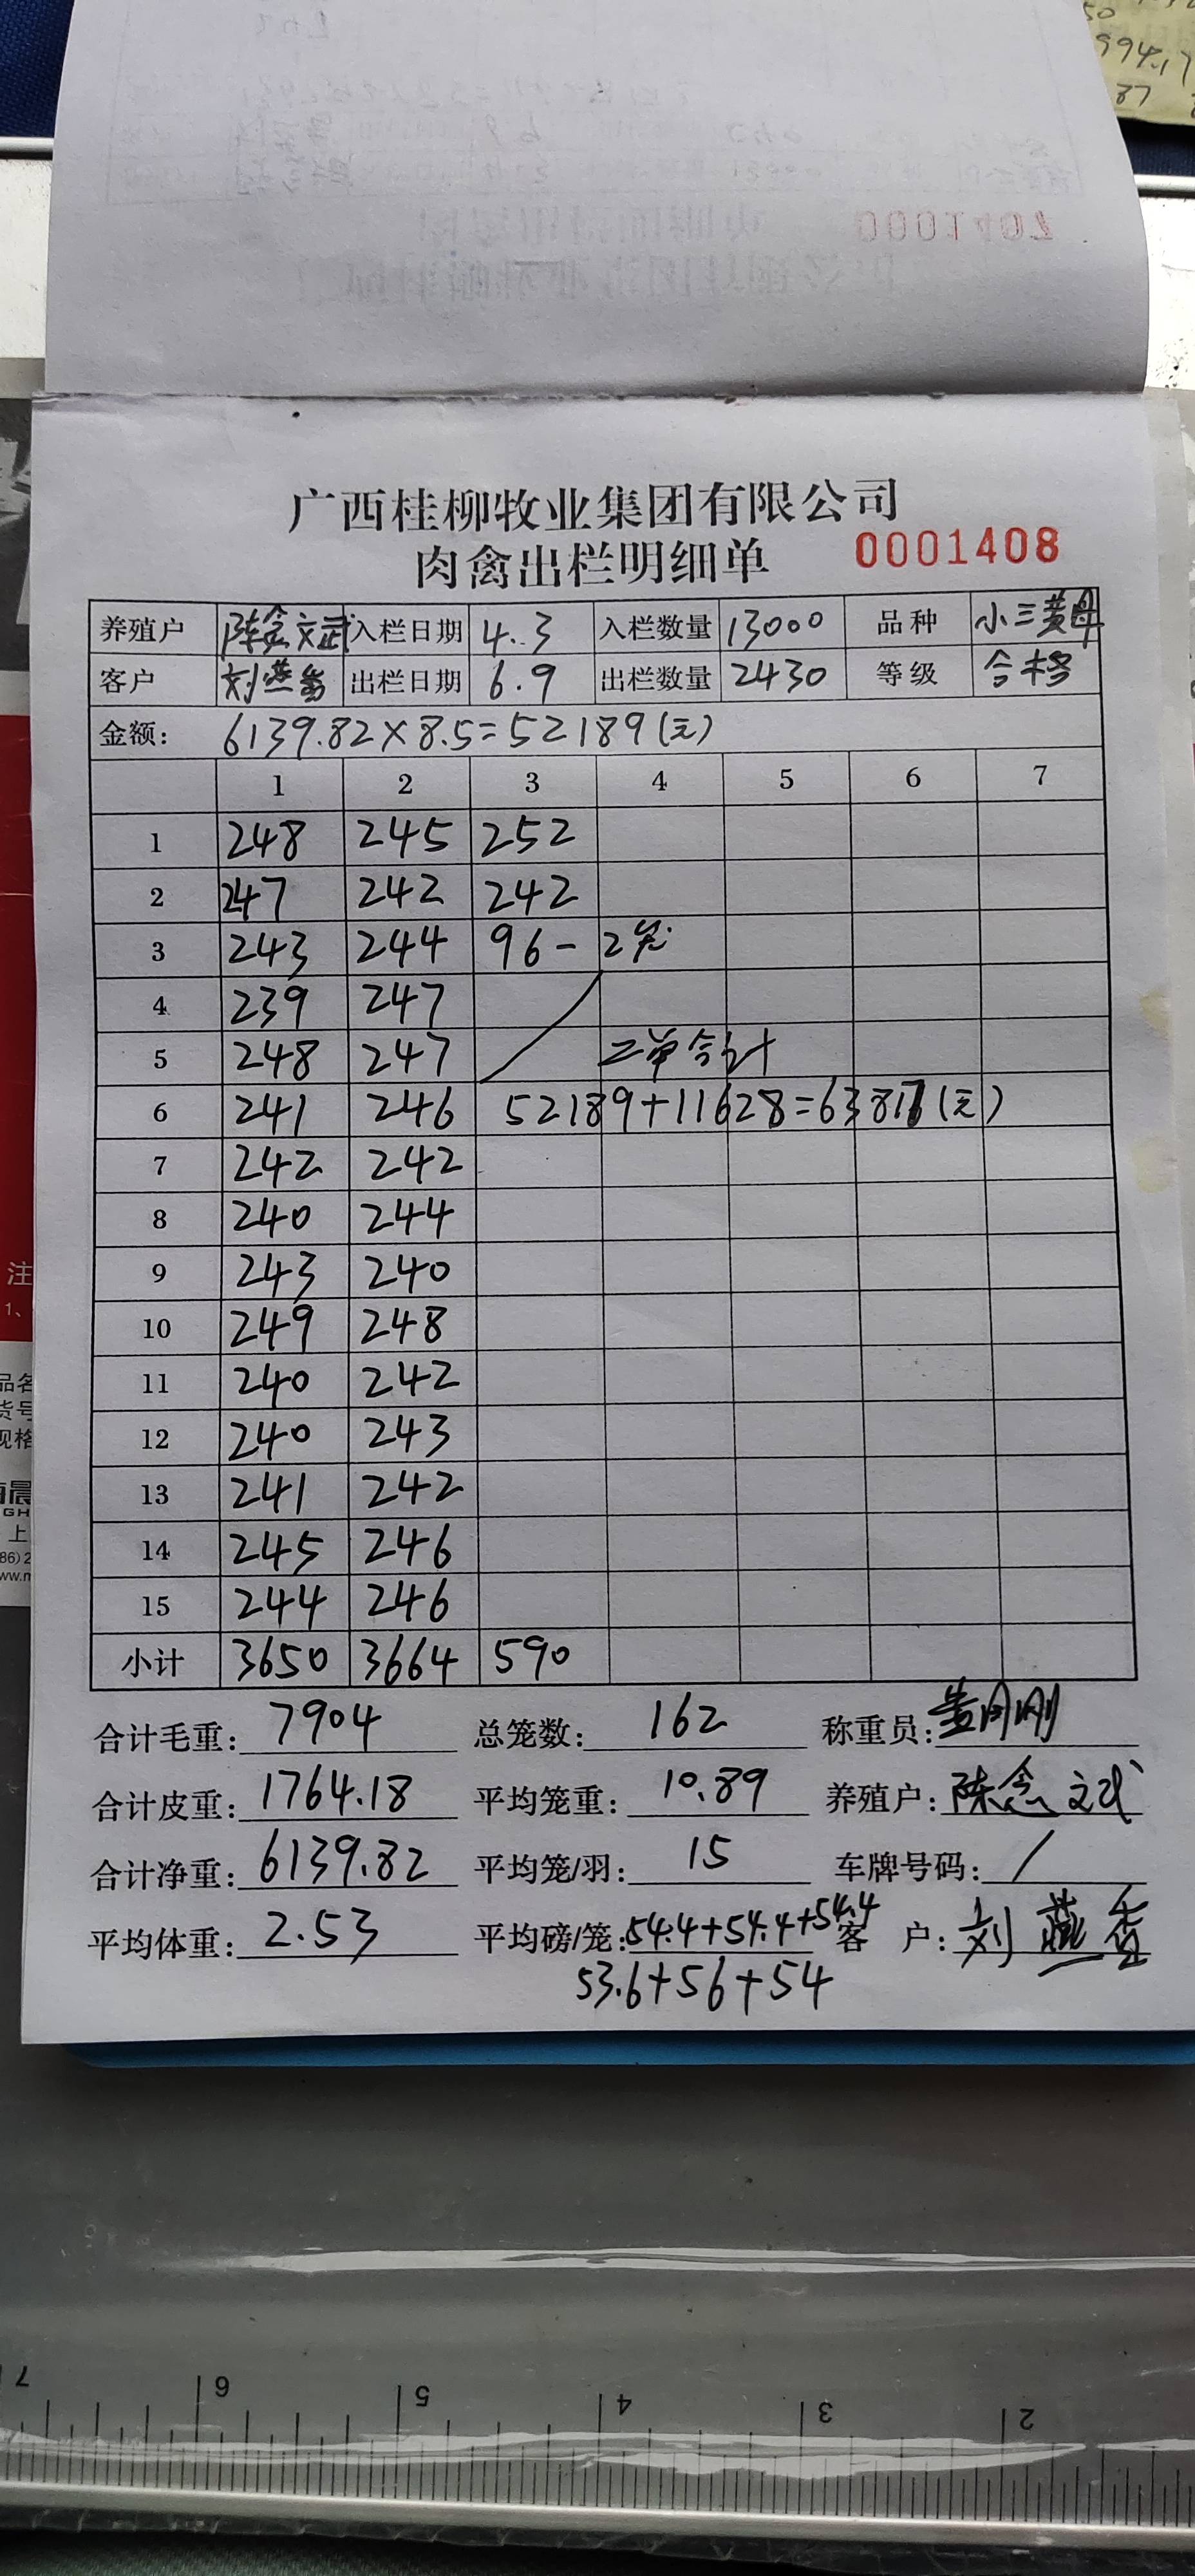 50
994.17
87
0001407
广西桂柳牧业集团有限公司
肉禽出栏明细单 0001408
养殖户 陈念文武 入栏日期 4.3 入栏数量 13000 品种 小三黄母
客户 刘燕香 出栏日期 6.9 出栏数量 2430 等级 合格
金额: 6139.82×8.5=52189(元)
1 2 3 4 5 6 7
1 248 245 252
2 247 242 242
3 243 244 96- 2笼
4 239 247
5 248 247 二单合计
6 241 246 52189+11628=63817(元)
7 242 242
8 240 244
9 243 240
10 249 248
11 240 242
12 240 243
13 241 242
14 245 246
15 244 246
小计 3650 3664 590
合计毛重: 7904 总笼数: 162 称重员:
合计皮重: 1764.18 平均笼重: 10.89 养殖户: 陈念文武
合计净重: 6139.82 平均笼/羽: 15 车牌号码: /
平均体重: 2.53 平均磅/笼: 54.4+54.4+54.4 客 户: 刘燕香
53.6+56+54
注
1、
品名
货号
规格
GH
上
86)2
ww.m
7 6 5 4 3 2